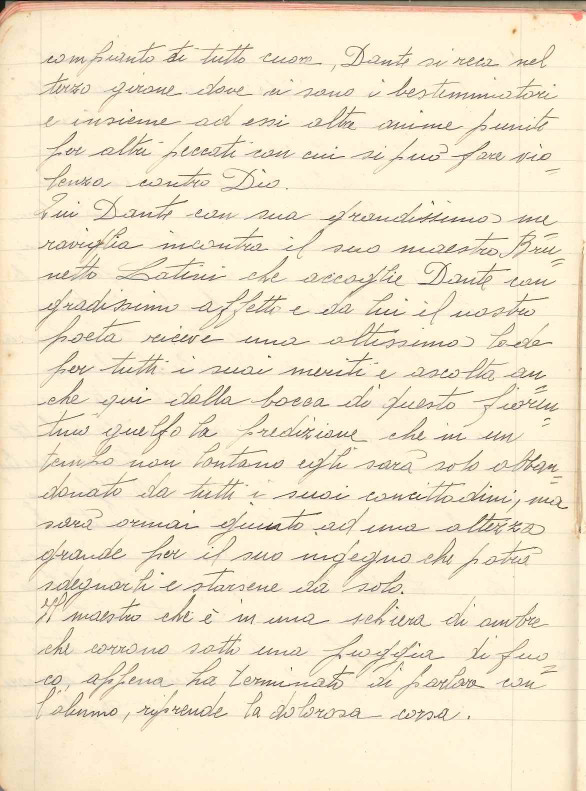 compianto di tutto cuore, Dante si reca nel
terzo girone dove vi sono i bestemmiatori
e insieme ad essi altre anime punite
per altri peccati con cui si può fare vio=
lenza contro Dio.
Qui Dante con sua grandissima me
raviglia incontra il suo maestro Bru=
netto Latini che accoglie Dante con
gradissimo affetto e da lui il nostro
poeta riceve una altissima lode
per tutti i suoi meriti e ascolta an=
che qui dalla bocca di questo fioren=
tino guelfo la predizione che in un
tempo non lontano egli sarà solo abban=
donato da tutti i suoi concittadini, ma
sarà ormai giunto ad una altezza
grande per il suo ingegno che potrà
sdegnarli e starsene da solo.
Il maestro che è in una schiera di ombre
che corrono sotto una pioggia di fuo=
co, appena ha terminato di parlare con
l'alunno, riprende la dolorosa corsa.